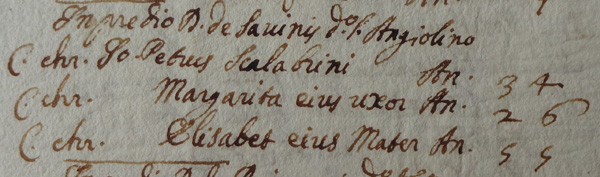 In predio D. de Savinis do. l'Angiolino
C. chr. Jo. Petrus Scalabrini An. 34
C. chr. Margarita eius uxor An. 26
C. chr. Elisabet eius Mater An. 55